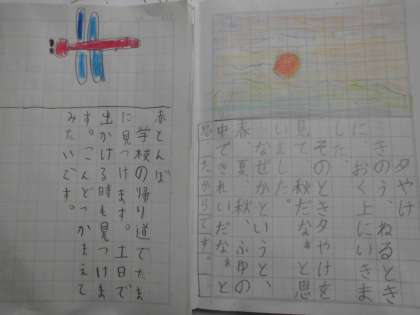 夕やけ
きのう、ねるとき
に、おく上にいきま
した。
そのとき夕やけを
見て、秋だなぁと思
いました。
なぜかというと、
春、夏、秋、ふゆの
中できれいだなぁと
思ったからです。
赤とんぼ
学校の帰り道でたま
に見つけます。土日で
出かける時も見つけま
す。こんどつかまえて
みたいです。